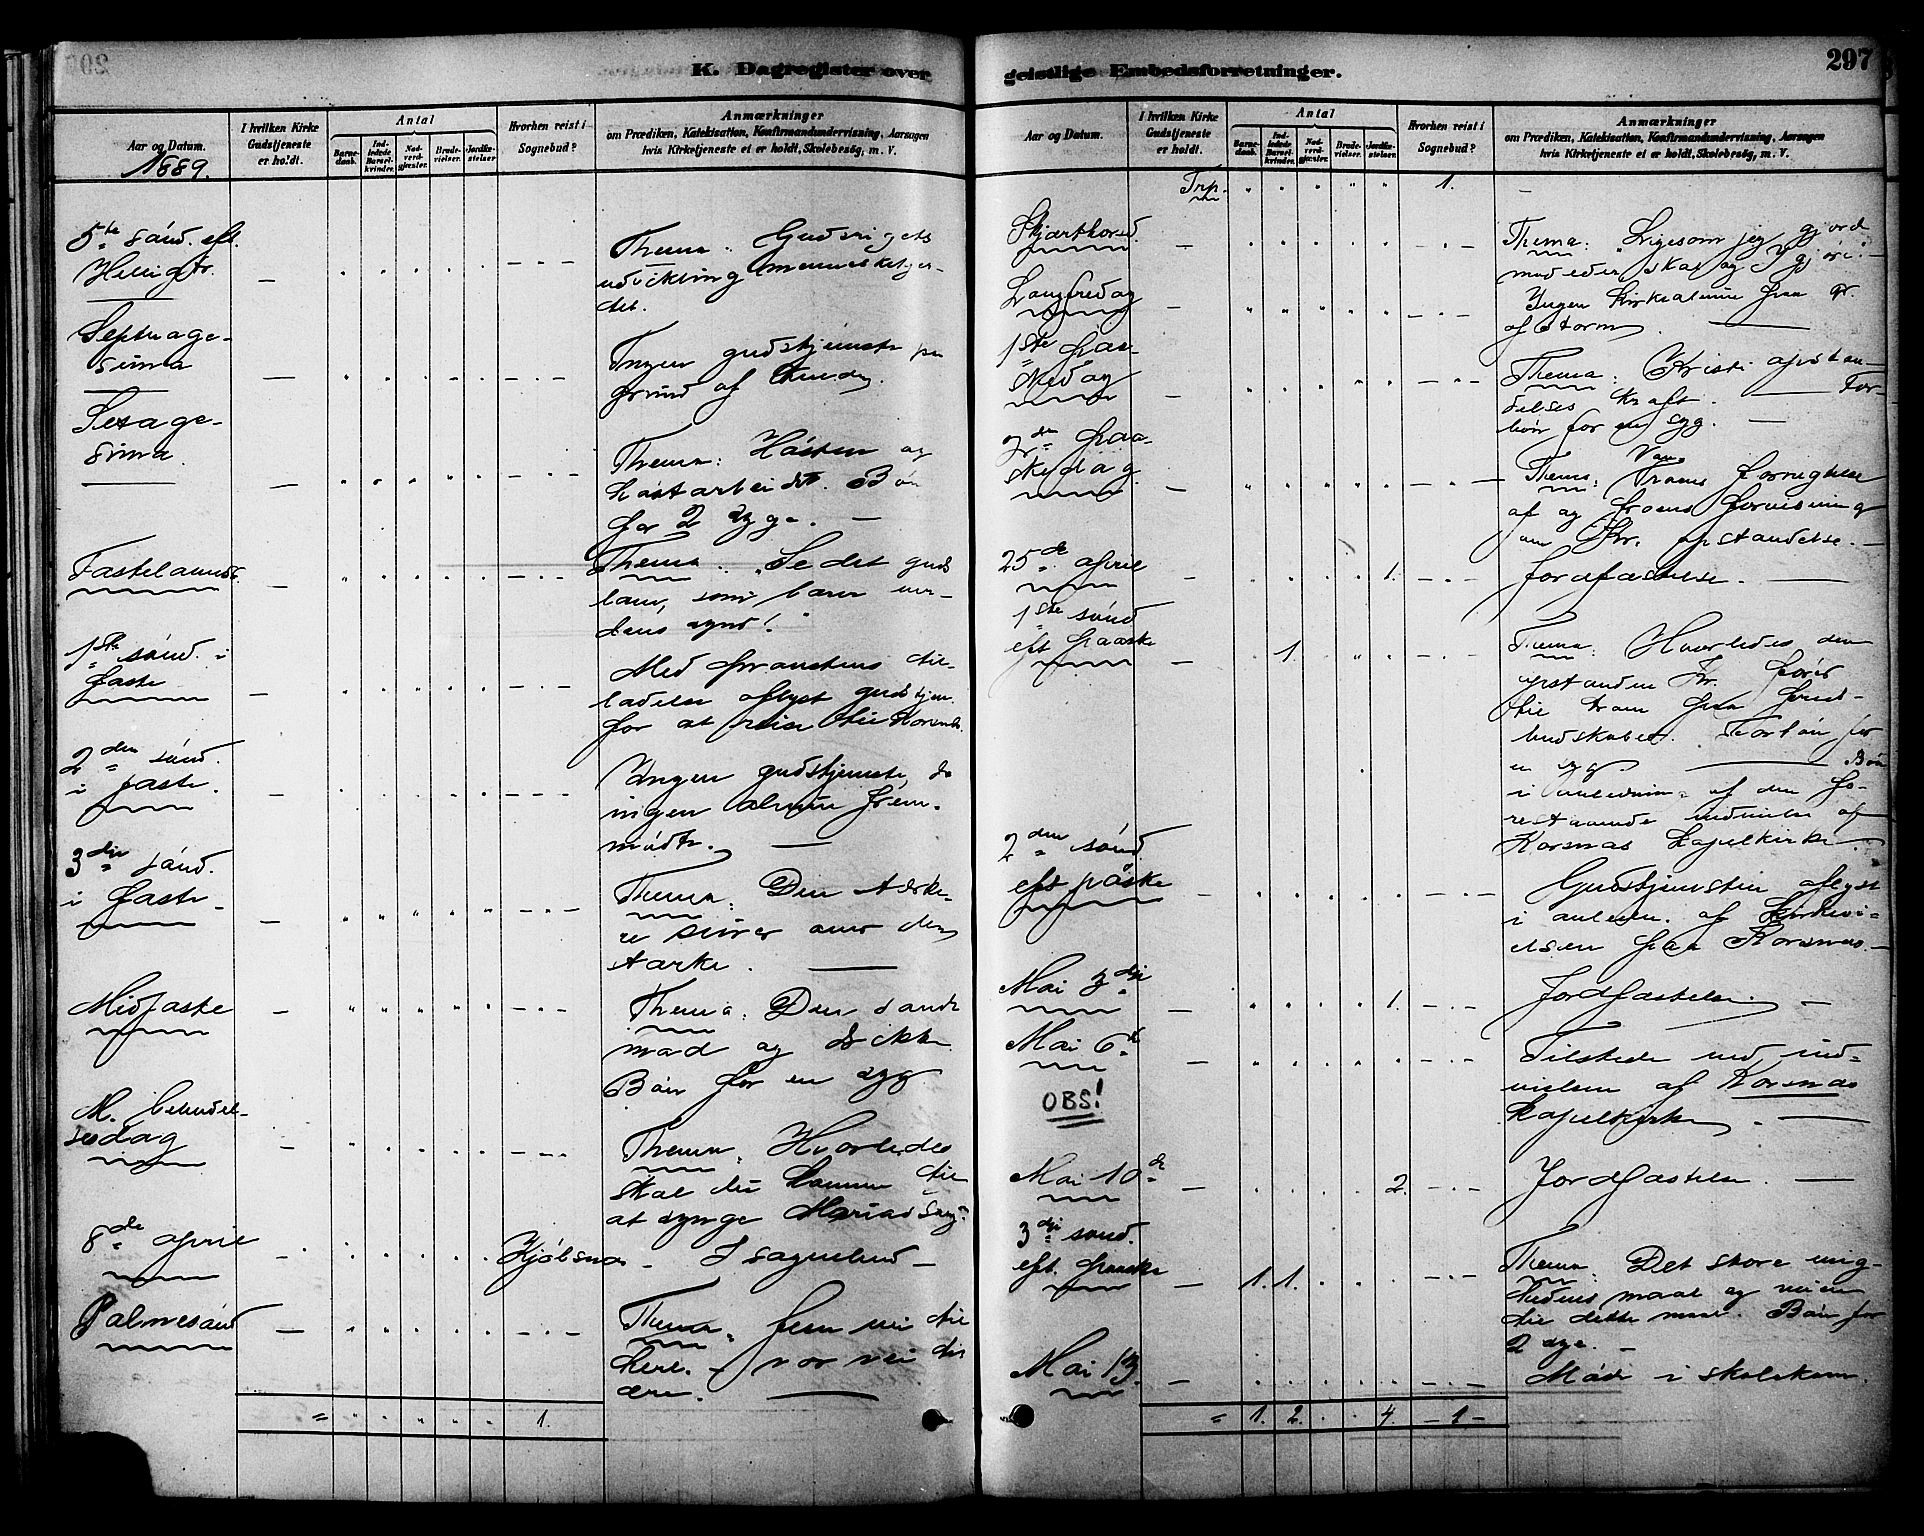 K. Dagregister over
Aar og Datum.
1889.
I hvilken Kirke Gudstjeneste er holdt.
Antal
Barnedaab.
Indledede Barselkvinder.
Nadverdgjæster.
Brudevielser.
Jordfæstelser
Hvorhen reist i Sognebud?
Anmærkninger
om Prædiken, Katekisation, Konfirmandundervisning, Aarsagen
hvis Kirketjeneste ei er holdt, Skolebesög, m. V.
5te sönd. eft.
Hellig tr.
Thema: Gudsrigets
udvikling
det.
Septuage-
sima
Ingen gudstjeneste pa
grund af
Sexage-
sima.
Thema: Hösten og
höstarbeidet. Bön
for 2 syge.
Fastelavnss.
Thema: "Se det guds
lam, som bærer ver-
dens synd!"
1ste sönd. i
faste
Med provstens til-
ladelse aflyst gudstjen.
for at reise til Korsnes.
2den sönd.
i faste.
Ingen gudstjeneste, da
ingen almue frem-
mödte.
3die sönd.
i faste.
Thema: Den stærke-
re seirer over den
stærke.
Midfaste
Thema: Den sande
mad og drikke
Bön for en syg
M. bebudel-
sesdag
Thema: Hvorledes
skal vi komme til
at synge Marias sang
8de april
Kjölsnes
I sognebud
Palmesönd
Thema: frem vei til
vor vei til
ære.
= 1.
geistlige Embedsforretninger.
297
Aar og Datum.
I hvilken Kirke Gudstjeneste er holdt.
Antal
Barnedaab.
Indledede Barselkvinder.
Nadverdgjæster.
Brudevielser.
Jordfæstelser.
Hvorhen reist i Sognebud?
Anmærkninger
om Prædiken, Katekisation, Konfirmandundervisning, Aarsagen
hvis Kirketjeneste ei er holdt, Skolebesög, m. V.
Trp. 1.
Skjærthorsd.
Thema: "Ligesom jeg gjord
mod eder skal og I gjöre."
Langfredag
Ingen kirkealmue paa gr.
af storm.
1ste paa-
skedag
Thema: Kristi opstan-
delses kraft. For-
bön for en syg.
2den paa-
skedag
Thema: Vantroens fornegtelse
af og troens forvisning
om Kr. opstandelse.
25de april
1.
Jordfæstelse.
1ste sönd
eft paaske
1.
Thema: Hvorledes den
opstanden Kr. förer
til troen paa
budskabet. Forbön for
en syg. Bön
i anledning af den fo-
restaaende indvielse af
Korsnæs kapelkirke.
2den sönd.
eft påske
Gudstjenesten aflyst
i anledn. af kirkevi-
elsen paa Korsnæs.
Mai 3die
1.
Jordfæstelse.
Mai 6te
OBS!
Tilstede ved ind-
vielsen af Korsnæs
kapelkirke.
Mai 10de
2.
Jordfæstelse.
3die sönd.
eft. paaske
1. 1.
Thema: Det store
maal og veien
til dette maal. Bön for
2 syge.
Mai 13.
Möde i skolekom.
= 1. 2. 4. 1